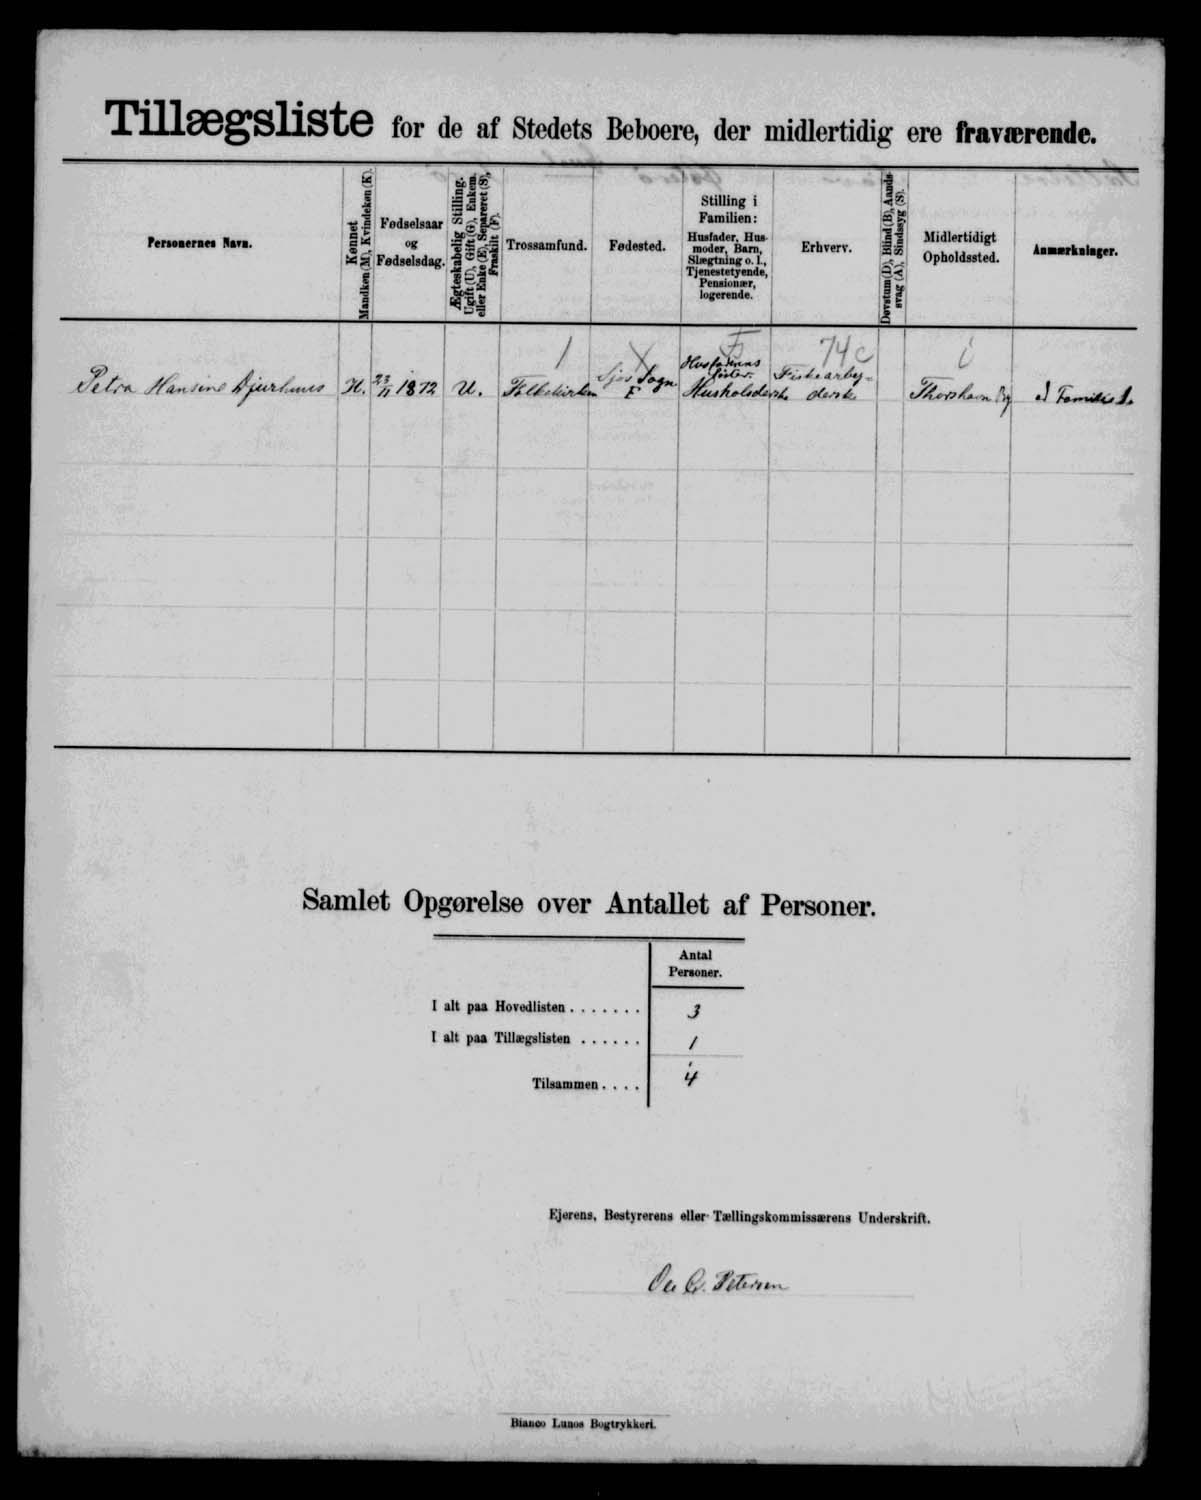 Tillægsliste for de af Stedets Beboere, der midlertidig ere fraværende.
Personernes Navn.
Kønnet
Mandkøn (M), Kvindekøn (K).
Fødselsaar
og
Fødselsdag.
Ægteskabelig Stilling.
Ugift (U), Gift (G), Enkem.
eller Enke (E), Separeret (S),
Fraskilt (F).
Trossamfund.
Fødested.
Stilling i
Familien:
Husfader, Hus-
moder, Barn,
Slægtning o. l.,
Tjenestetyende,
Pensionær,
logerende.
Erhverv.
Døvstum (D), Blind (B), Aands-
svag (A), Sindssyg (S).
Midlertidigt
Opholdssted.
Anmærkninger.
1 X F 74c i
Petra Hansine Djurhuus K. 23/11 1872 U. Folkekirken
Sjov Sogn
F
Husfaderens
Søster.
Fiskearbej-
derske
Thorshavn By
Samlet Opgørelse over Antallet af Personer.
Antal
Personer.
I alt paa Hovedlisten . . . . . . . 3
I alt paa Tillægslisten . . . . . . 1
Tilsammen . . . . 4
Ejerens, Bestyrerens eller Tællingskommissærens Underskrift.
Petersen
Bianco Lunos Bogtrykkeri.